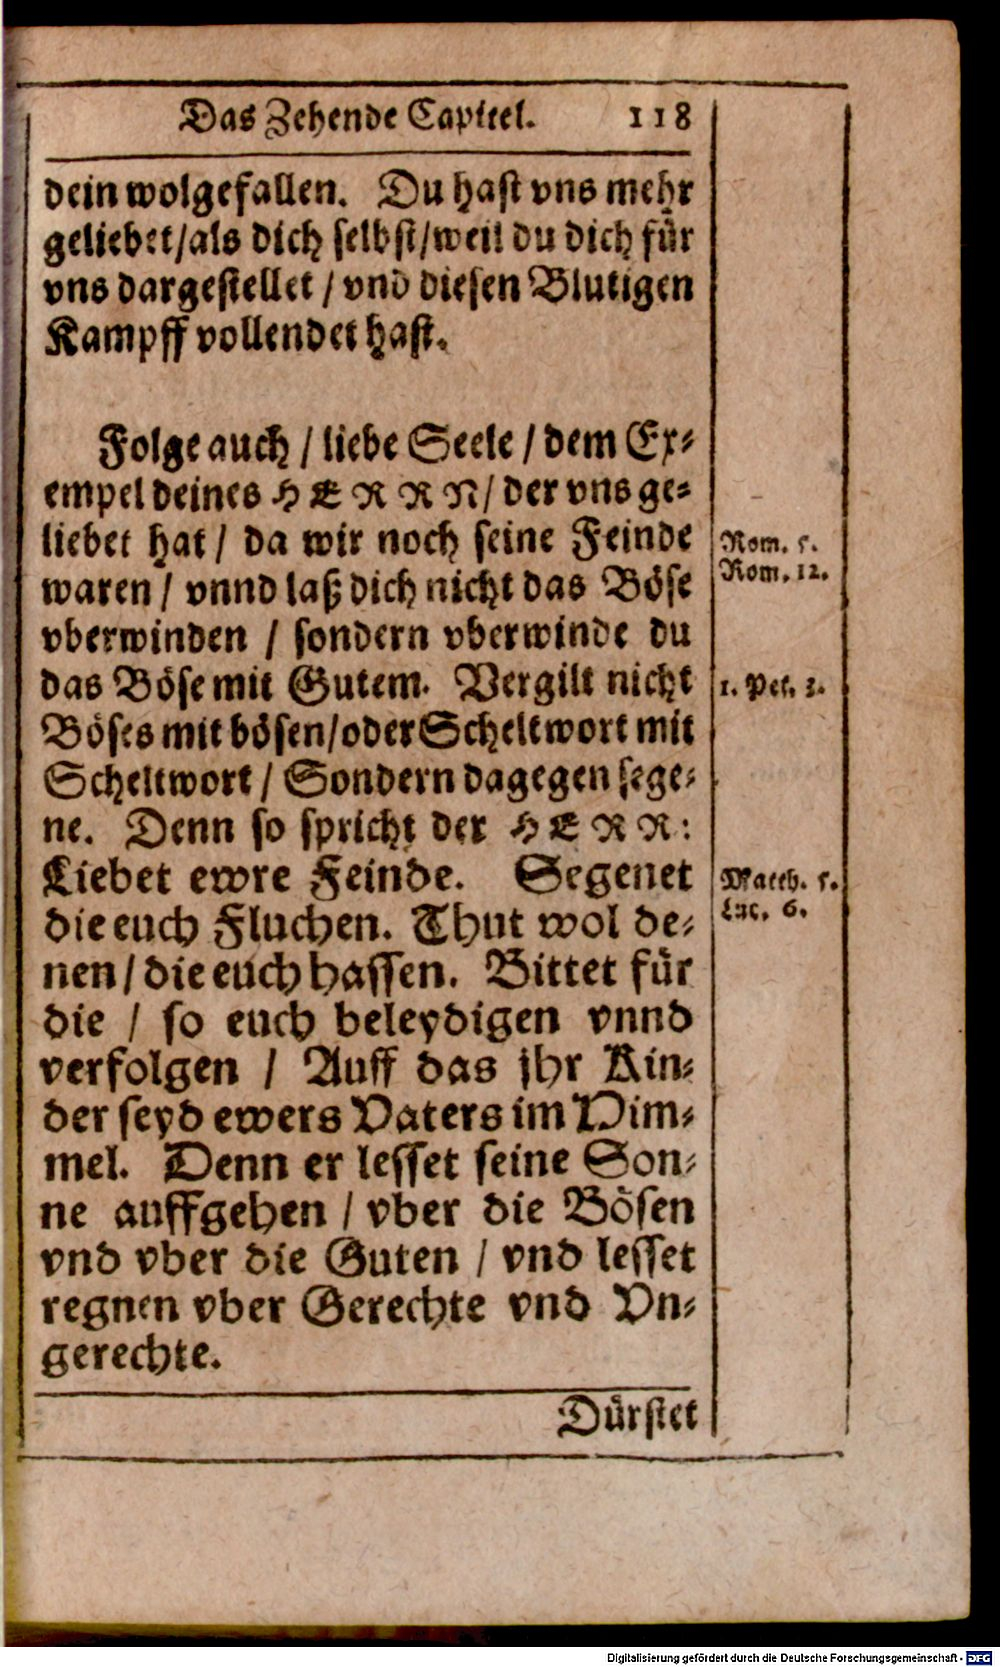 Das Zehende Capittel. 118
dein wolgefallen. Du hast vns mehr
geliebet/als dich selbst/weil du dich für
vns dargestellet / vnd diesen Blutigen
Kampff vollendet hast.
Folge auch / liebe Seele / dem Ex⸗
empel deines HERRN/ der vns ge⸗
liebet hat / da wir noch seine Feinde
Rom. 5.
waren / vnnd laß dich nicht das Böse
Rom. 12.
vberwinden / sondern vberwinde du
das Böse mit Gutem. Vergilt nicht
1. Pet. 3.
Böses mit bösen/oder Scheltwort mit
Scheltwort / Sondern dagegen sege⸗
ne. Denn so spricht der HERR:
Liebet ewre Feinde. Segenet
Matth. 5.
die euch Fluchen. Thut wol de⸗
Luc. 6.
nen / die euch hassen. Bittet für
die / so euch beleydigen vnnd
verfolgen / Auff das jhr Kin⸗
der seyd ewers Vaters im Him⸗
mel. Denn er lesset seine Son⸗
ne auffgehen / vber die Bösen
vnd vber die Guten / vnd lesset
regnen vber Gerechte vnd Vn⸗
gerechte.
Dürstet
Digitalisierung gefördert durch die Deutsche Forschungsgemeinschaft - DFG